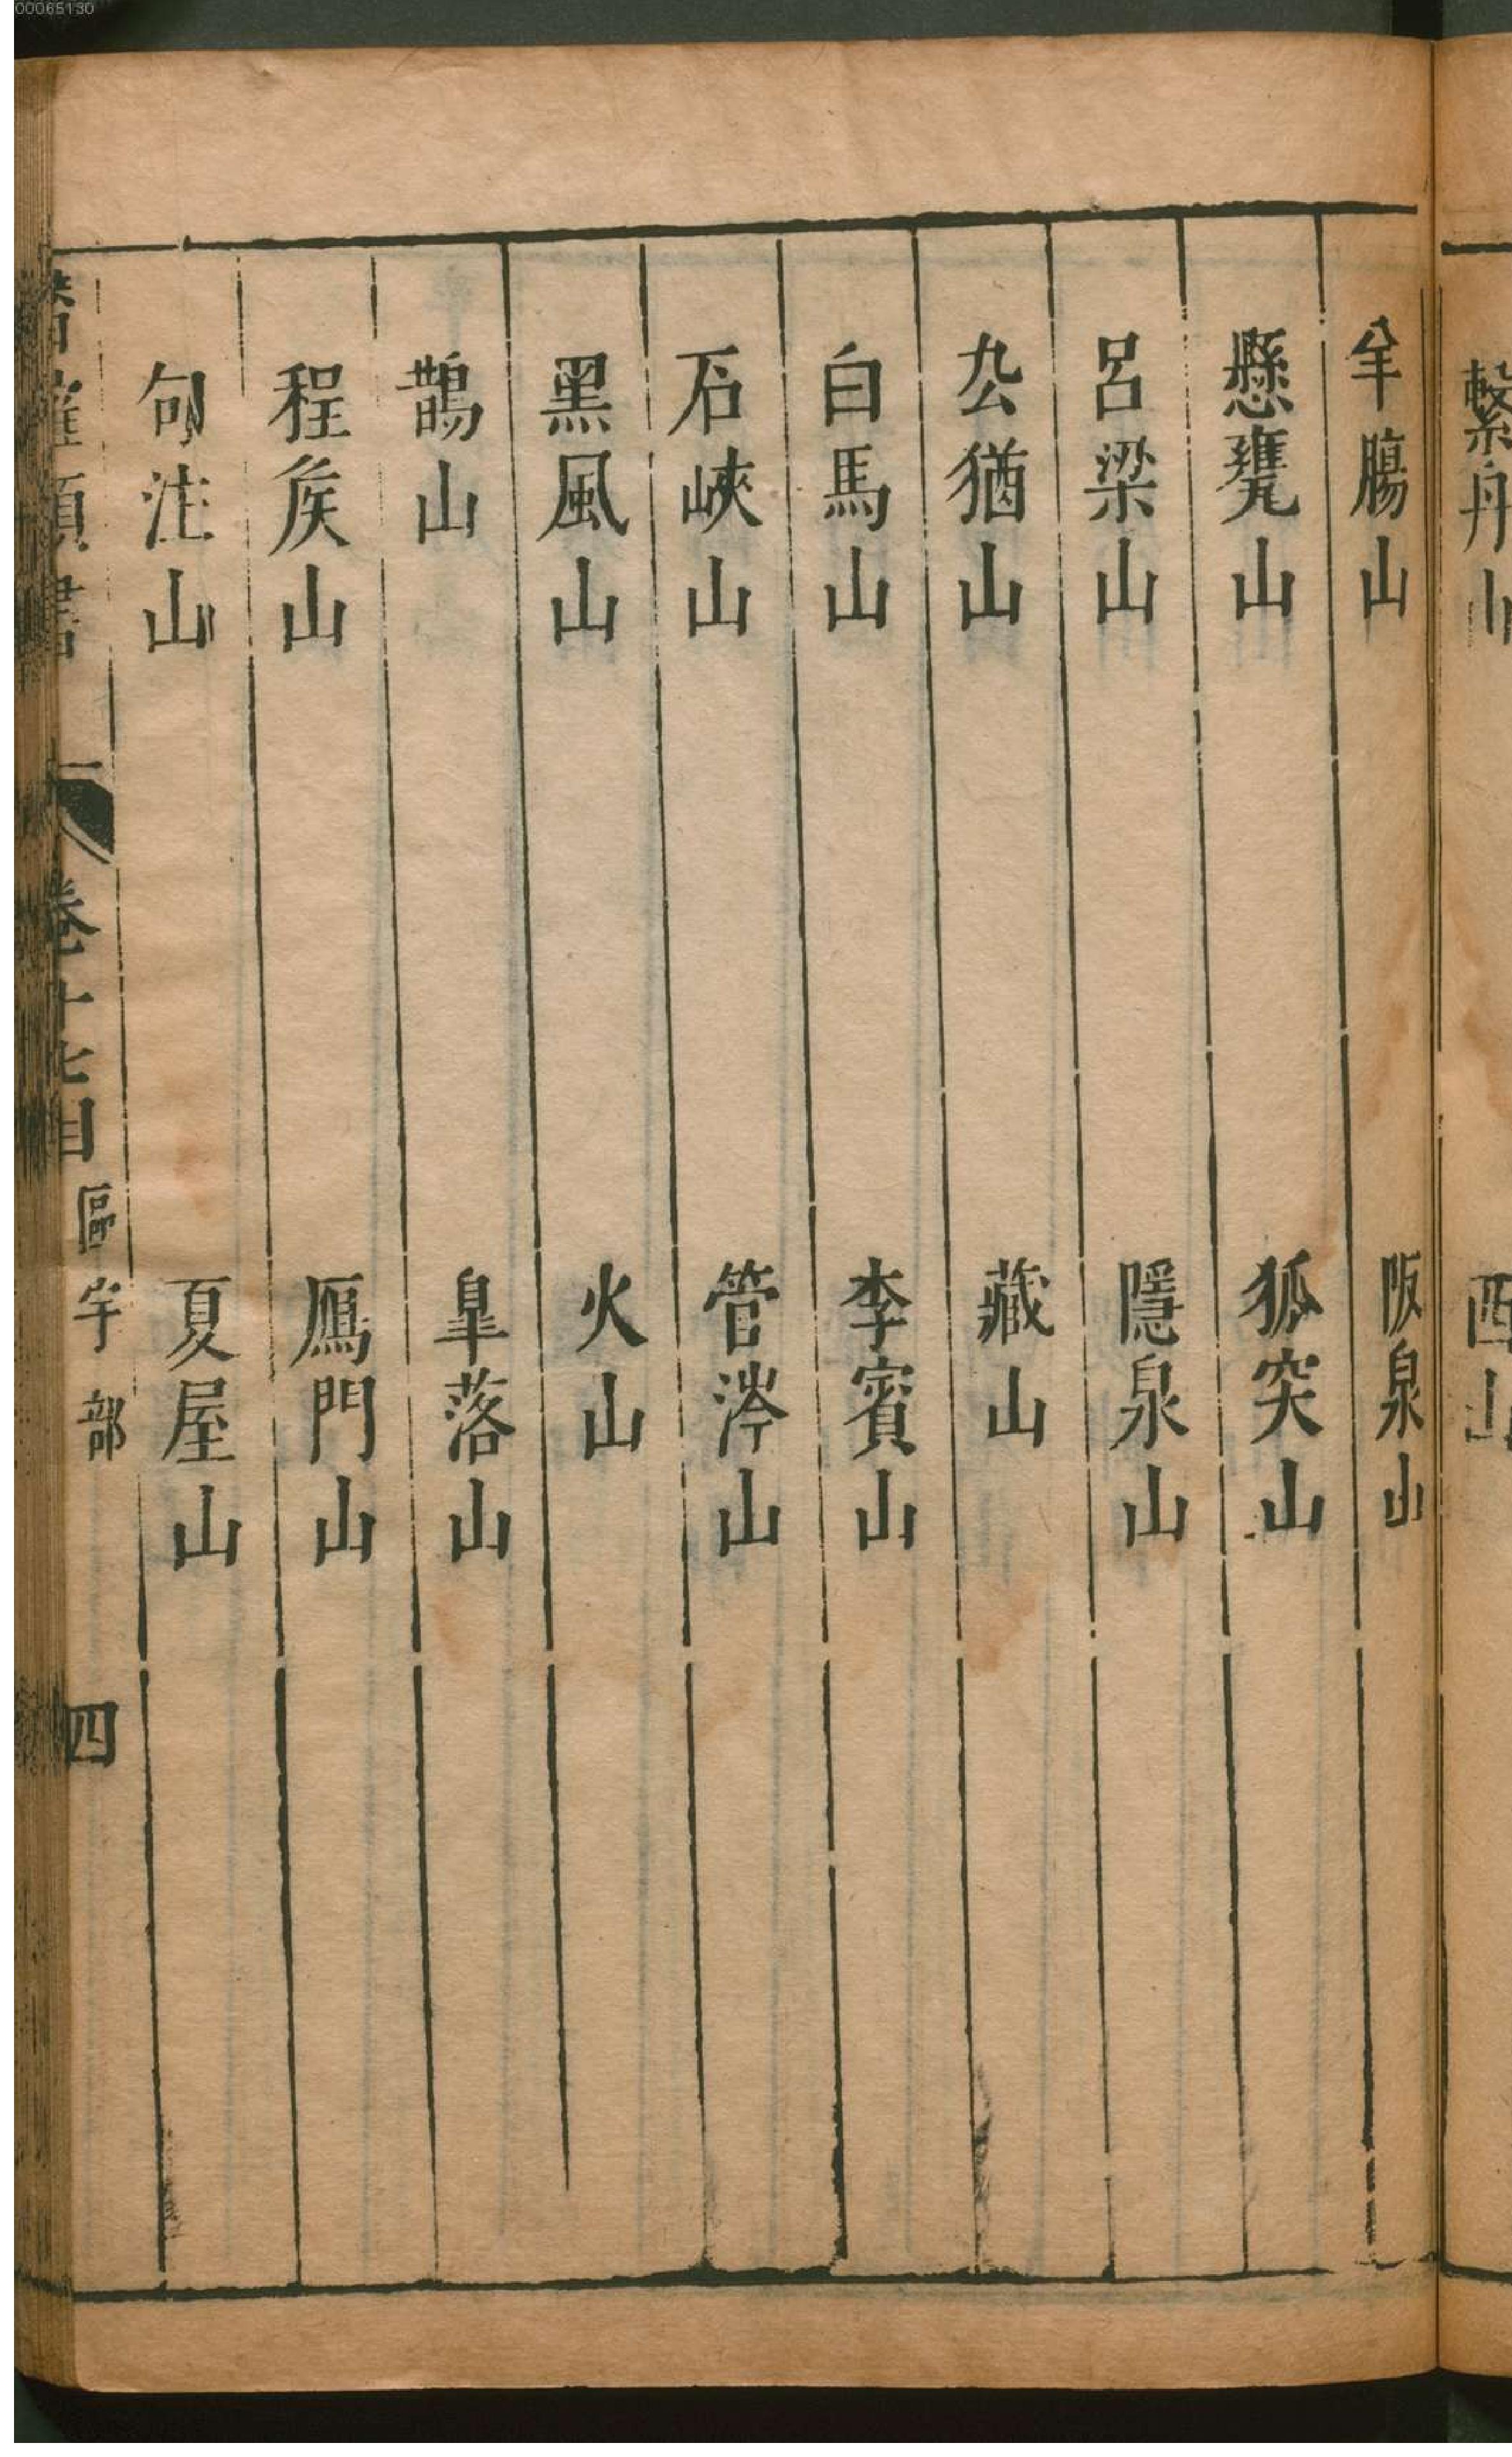 00065130
繫舟山 西山
羊腸山 阪泉山
懸甕山 狐突山
呂梁山 隱泉山
厹猶山 藏山
白馬山 李賓山
石峽山 管涔山
黑風山 火山
鵲山 皐落山
程侯山 鴈門山
句注山 夏屋山
潛確類書 卷十七目 區宇部 四